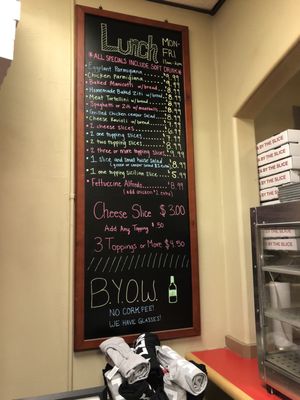 Lunch
MON-
FRI
11am-2pm
*ALL SPECIALS INCLUDE SOFT DRINK*
Eggplant Parmigiana
Chicken Parmigiana
Baked Manicotti w/bread
Homemade Baked Ziti w/bread
Meat Tortellini w/bread
Spaghetti or Ziti w/meatballs
Grilled chicken caesar Salad
Cheese Ravioli w/bread
2 cheese slices
2 one topping slices
2 two topping slices
2 three or more topping slices
1 slice and small house salad 8.99
1 one topping sicilian slice 5.99
Fettuccine Alfredo 8.99
(add chicken $2 extra)
Cheese Slice $3.00
Add Any Topping $.50
3 Toppings or More $4.50
B.Y.O.W.
NO CORK FEE!
WE HAVE GLASSES!
BY THE SLICE
BY THE SLICE
BY THE SLICE
BY THE SLICE